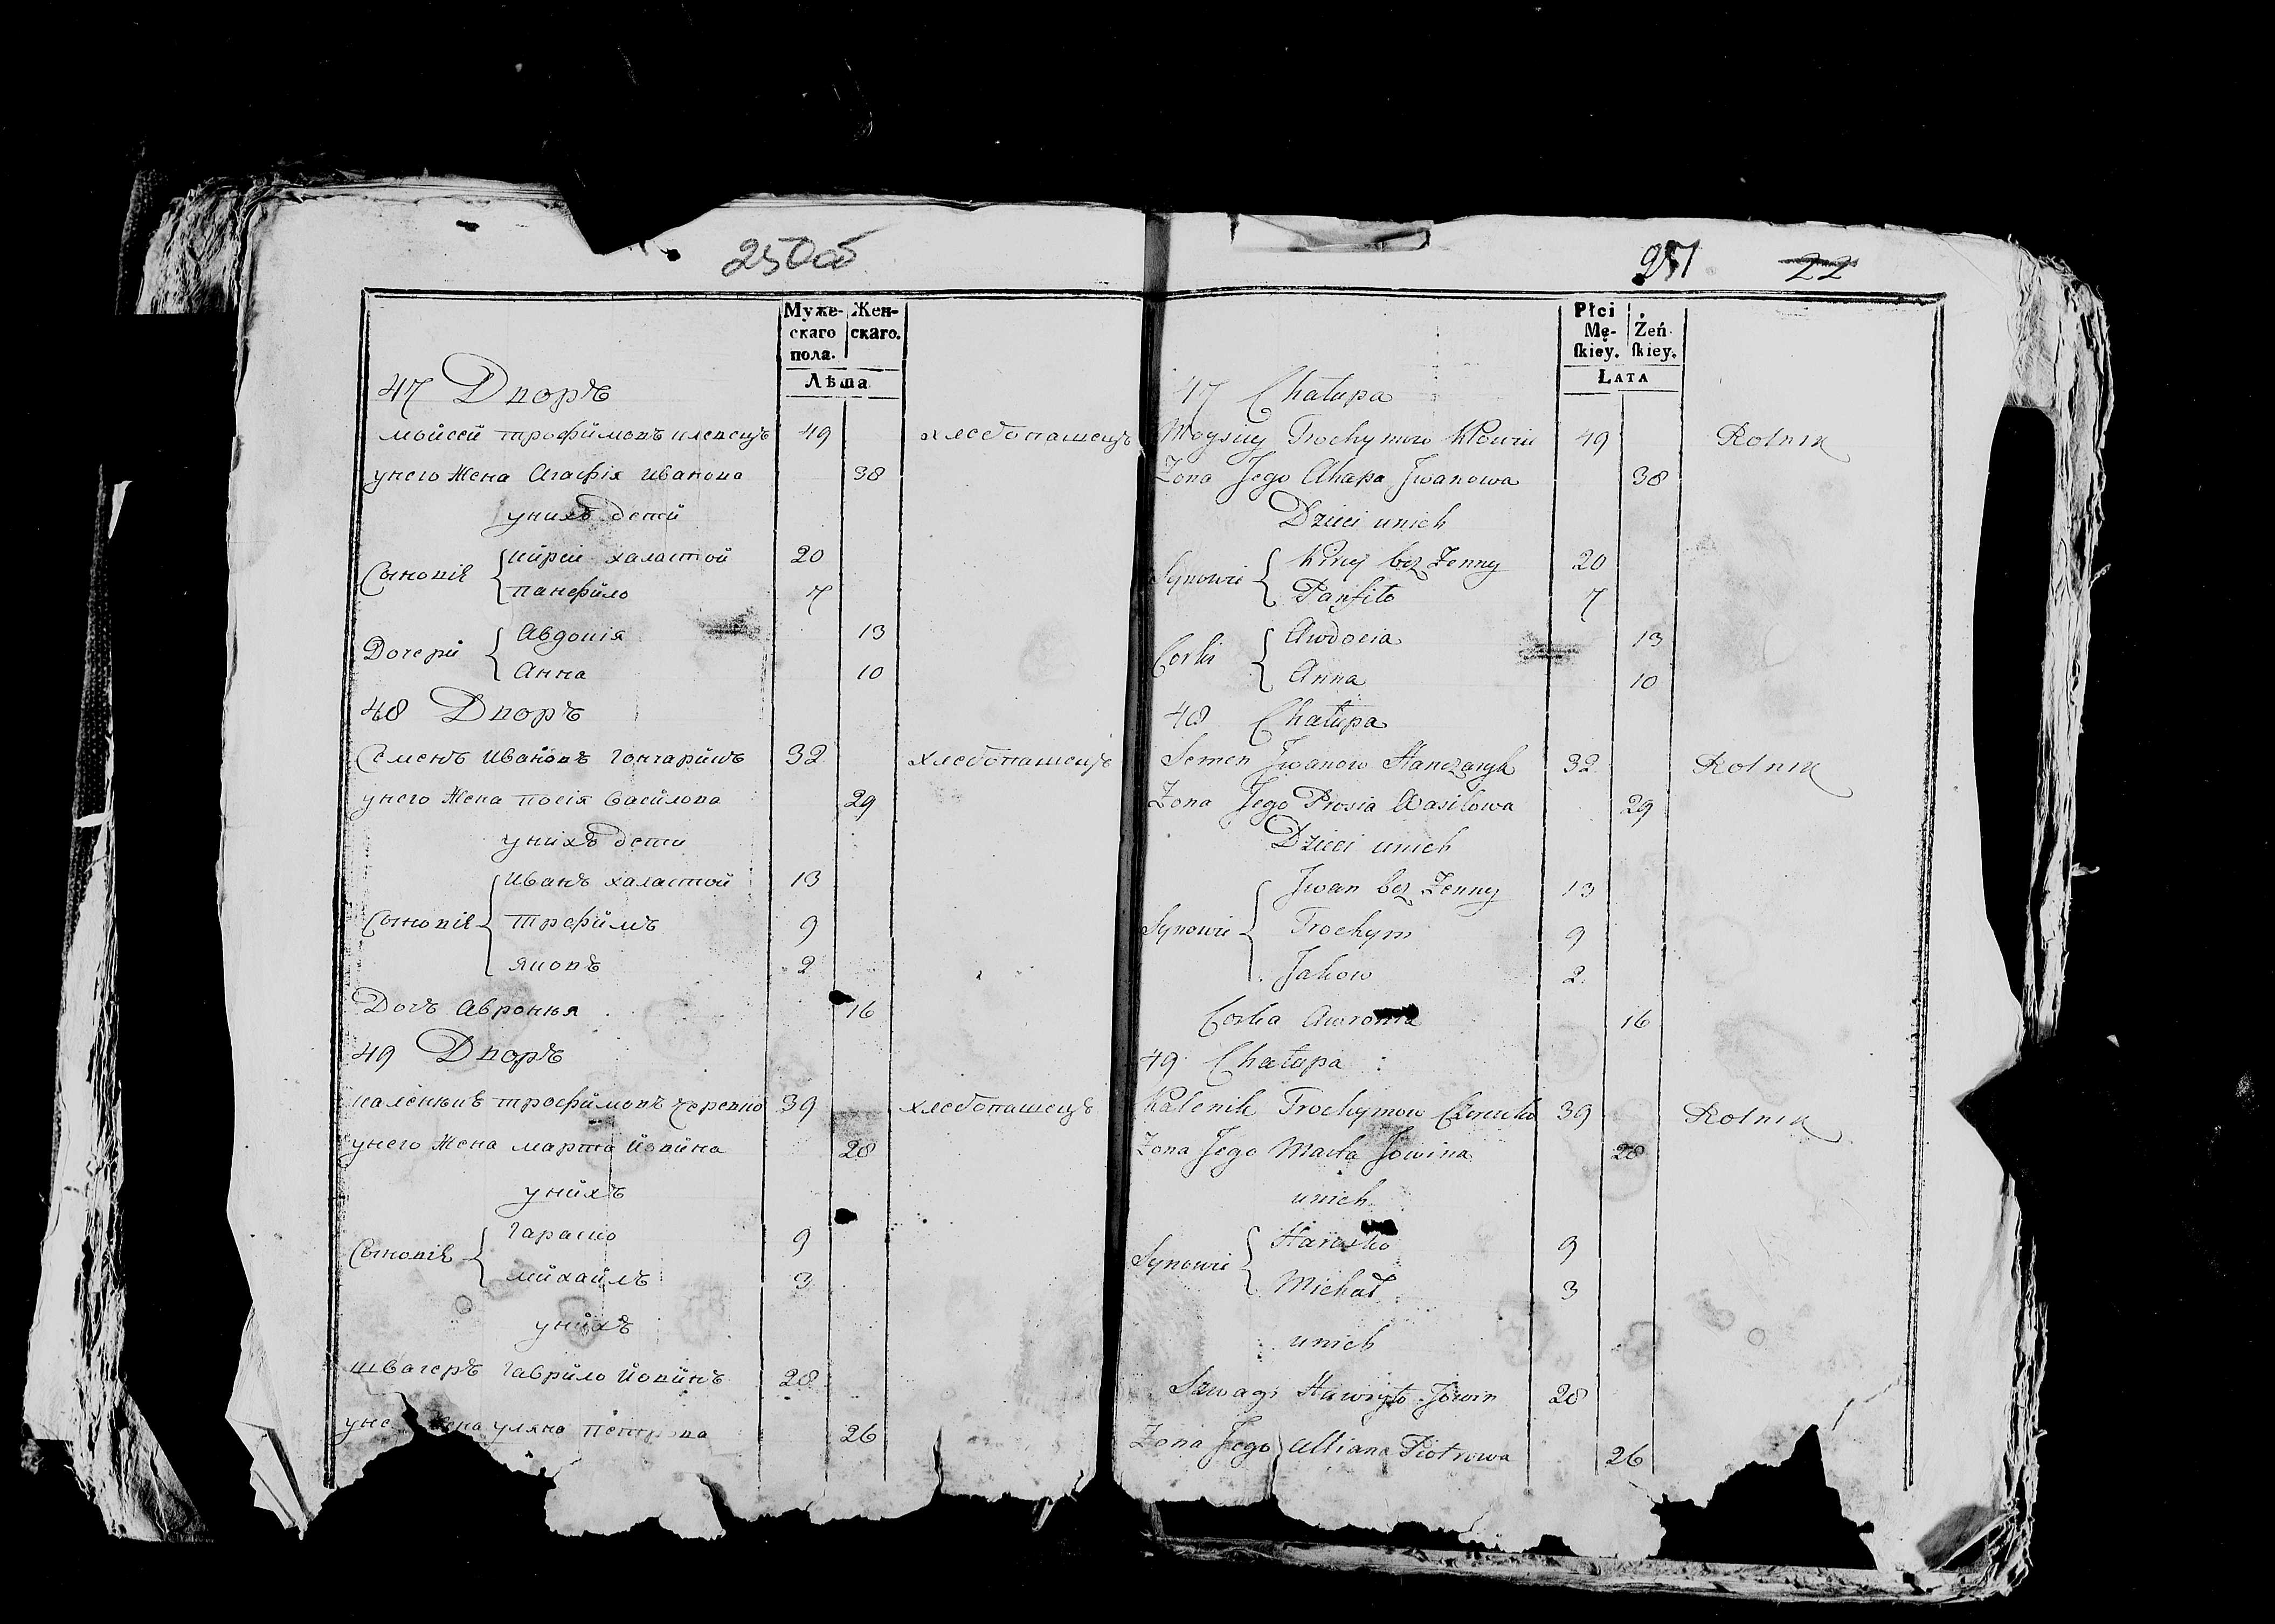 250об
Муже-
скаго
пола.
Жен-
скаго.
Лѣта
47 Дворъ
мойсей трофймовъ клевецъ 49 хлебопашецъ
унего жена Агафія иванова 38
унихъ детй
Сыновія
кйрей халастой 20
панфйло 7
Дочерй
Авдошія 13
Анна 10
48 Дворъ
Семенъ ивановъ гончарйкъ 32 хлебопашецъ
унего жена посія василова 29
унихъ дети
Сыновія
иванъ халастой 13
трофймъ 9
яковъ 2
Дочъ Авронья 16
49 Дворъ
каленыкъ трофймовъ черевко 39 хлебопашецъ
унего жена марта йовйна 28
унйхъ
Сыновія
гараско 9
мйхайлъ 3
унйхъ
швагеръ гаврйло йовйнъ 28
жена уляна 26
251 22
Płci
Mę-
skiey.
Żeń-
skiey.
LATA
47 Chałupa
Moysiey Trochymow 49 Rolnik
Zona Jego Ahapa Jwanowa 38
Dzieci unich
Synowie
Kirey bez Zenny 20
Panfiło 7
Corki
Awdocia 13
Anna 10
48 Chałupa
Semen Jwanow Hanczaryk 32 Rolnik
Zona Jego Prosia Wasilowa 29
Dzieci unich
Synowie
Jwan bez Zenny 13
Trochym 9
Jakow 2
Corka Awronia 16
49 Chałupa
Kalenik Trochymow Czerewko 39 Rolnik
Zona Jego Marta Jowina 28
unich
Synowie
Harasko 9
Michał 3
unich
Szwagr Hawryło Jowin 28
Zona Jego Ulliana Piotrowa 26